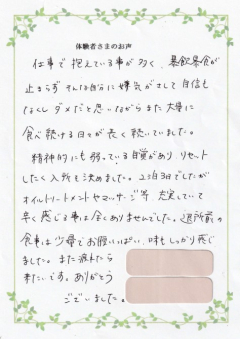 体験者さまのお声
仕事で抱えている事が多く、暴飲暴食が
止まらず そんな自分に嫌気がさして自信も
なくし ダメだと思いながらまた大量に
食べ続ける日々が長く続いていました。
精神的にも弱っている自覚があり リセット
したく入所を決めました。2泊3日でしたが
オイルトリートメントやマッサージ等 充実していて
辛く感じる事は全くありませんでした。退所前の
食事は少量でお腹いっぱい、味もしっかり感じ
ました。また疲れたら
来たいです。ありがとう
ございました。